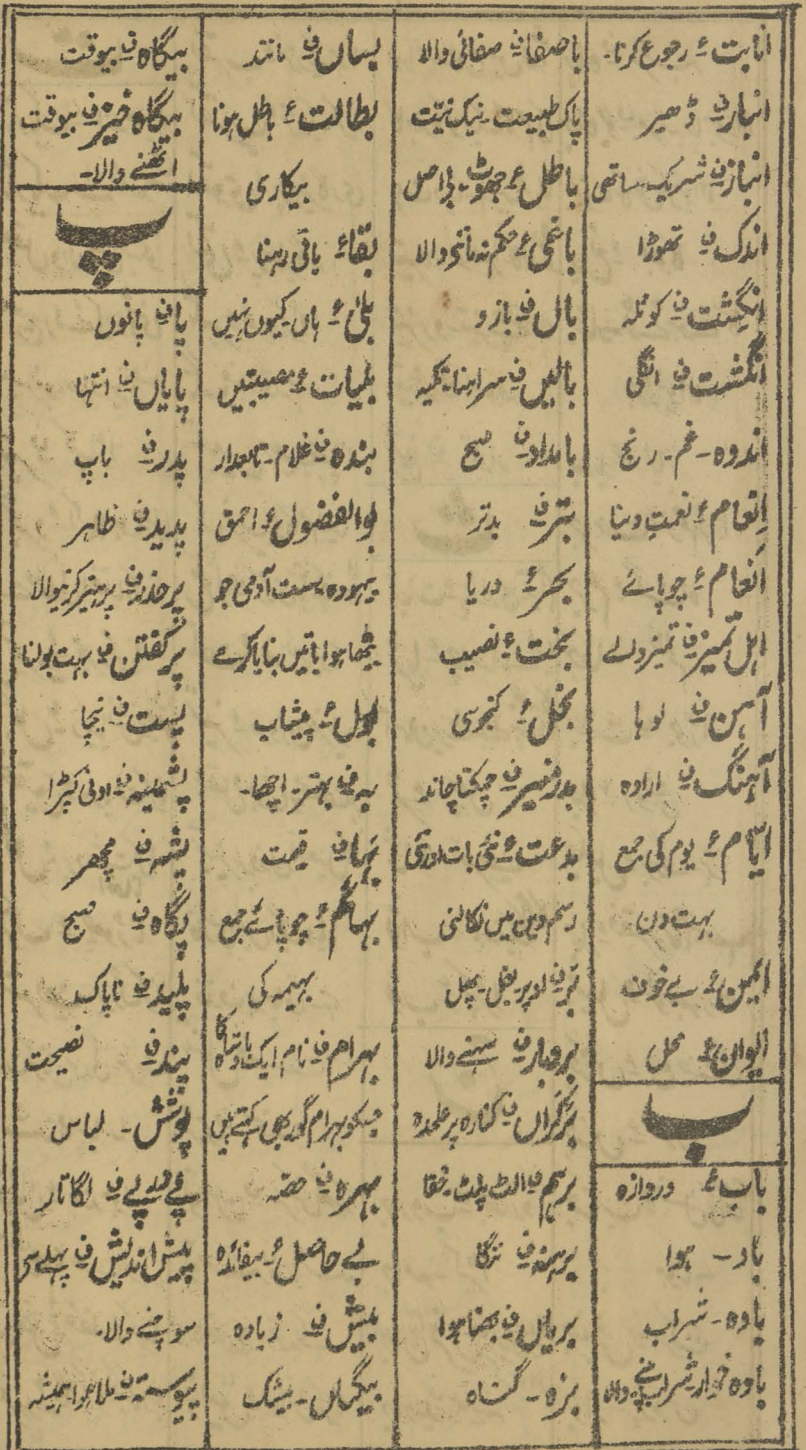 انابت ع رجوع کرنا۔
انبار ف ڈھیر
انباز ف شریک۔ ساتھی
اندک ف تھوڑا
انگِشت ف کوئلہ
انگُشت ف انگلی
اندوہ۔ غم۔ رنج
اِنعام ع نعمت دینا
اَنعام ع چوپائے
اہل تمیز ف تمیز والے
آہن ف لوہا
آہنگ ف ارادہ
ایّام ع یوم کی جمع
بہت دن
ایمن ع بے خوف
ایوان ع محل
ب
باب ع دروازہ
باد۔ ہوا
بادہ۔ شراب
بادہ خوار شراب پینے والا
باصفا ف صفائی والا
پاک طبیعت۔ نیک نیّت
باطل ع جھوٹ۔ بے اصل
باغی ع حکم نہ ماننے والا
بال ف بازو
بالیں ف سراہنا۔ تکیہ
بامداد ف صبح
بتر ف بدتر
بحر ع دریا
بخت ع نصیب
بخل ع کنجوسی
بدر منیر ف چمکتا چاند
بدعت ع نئی بات اور نئی
رسم دین میں نکالنی
بر ف اوپر۔ بغل۔ پھل
بردبار ف سہنے والا
برکراں ف کنارہ پر علحدہ
برہم ف الٹ پلٹ۔ خفا
برہنہ ف ننگا
بریاں ف بھنا ہوا
بزہ۔ گناہ
بساں ف مانند
بطالت ع باطل ہونا
بیکاری
بقا ع باقی رہنا
بلیٰ ع ہاں۔ کیوں نہیں
بلیات ع مصیبتیں
بندہ ف غلام۔ تابعدار
بوالفضول ع احمق
بیہودہ سست آدمی جو
بیٹھا ہوا باتیں بنایا کرے
بول ع پیشاب
بہ ف بہتر۔ اچھا۔
بہا ف قیمت
بہائم ع چوپائے جمع
بہیمہ کی
بہرام ف نام ایک بادشاہ کا
جسکو بہرام گور بھی کہتے ہیں
بہرہ ف حصّہ
بے حاصل ع بیفائدہ
بیش ف زیادہ
بیگماں۔ بیشک
بیگاہ ف بیوقت
بیگاہ خیز ف بیوقت
اٹھنے والا۔
پ
پا ف پانوں
پایاں ف انتہا
پدر ف باپ
پدید ف ظاہر
پرحذر ف پرہیز کرنیوالا
پرگفتن ف بہت بولنا
پست ف نیچا
پشمینہ ف اونی کپڑا
پشہ ف مچھر
پگاہ ف صبح
پلید ف ناپاک
پند ف نصیحت
پوشش۔ لباس
پے درپے ف لگاتار
پیش اندیش ف پہلے سے
سوچنے والا۔
پیوستہ ف ملا ہوا ہمیشہ